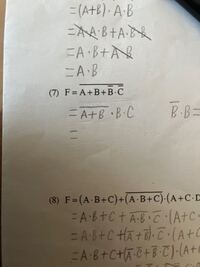 =(A+B)·A·B
=A·A·B+A·B·B
=A·B+A·B
=A·B
(7) F=\overline{A+B+\overline{B}·\overline{C}}
=\overline{A+B}·B·C
\overline{B}·B=
=
(8) F=(A·B+C)+(\overline{A·B+C})·(A+C·D
=A·B+C+\overline{A·B}·\overline{C}·(A+C·
=A·B+C+(\overline{A}+\overline{B})·\overline{C}·(A+C
=A·B+C+(\overline{A}·\overline{C}+\overline{B}·\overline{C})·(A